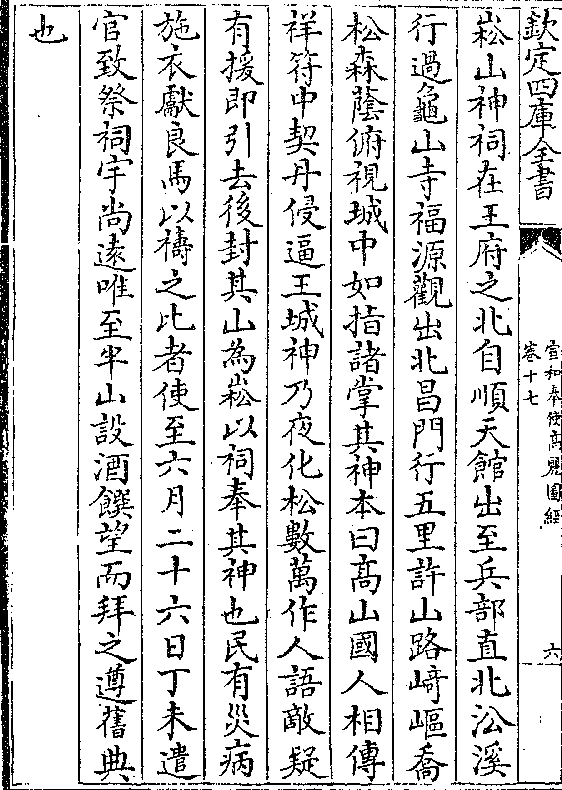 欽定四庫全書
宣和奉使髙麗圖經
卷十七
六
崧山神祠在王府之北自順天館出至兵部直北㳂溪
行過龜山寺福源觀出北昌門行五里許山路﨑嶇喬
松森蔭俯視城中如指諸掌其神本曰髙山國人相傳
祥符中契丹侵逼王城神乃夜化松數萬作人語敵疑
有援即引去後封其山為崧以祠奉其神也民有災病
施衣獻良馬以禱之比者使至六月二十六日丁未遣
官致祭祠宇尚逺唯至半山設酒饌望而拜之遵舊典
也